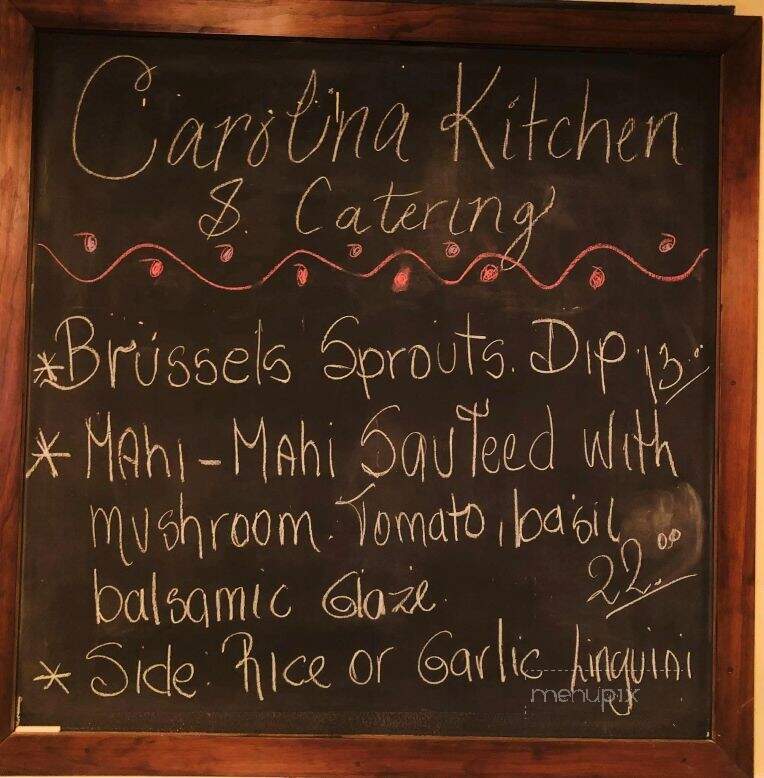 Carolina Kitchen
& Catering
*Brussels Sprouts. Dip. 13.00
* MAhi-MAhi Sauteed With
mushroom. Tomato, basil
balsamic Glaze. 22.00
* Side: Rice or Garlic Linguini
menupix